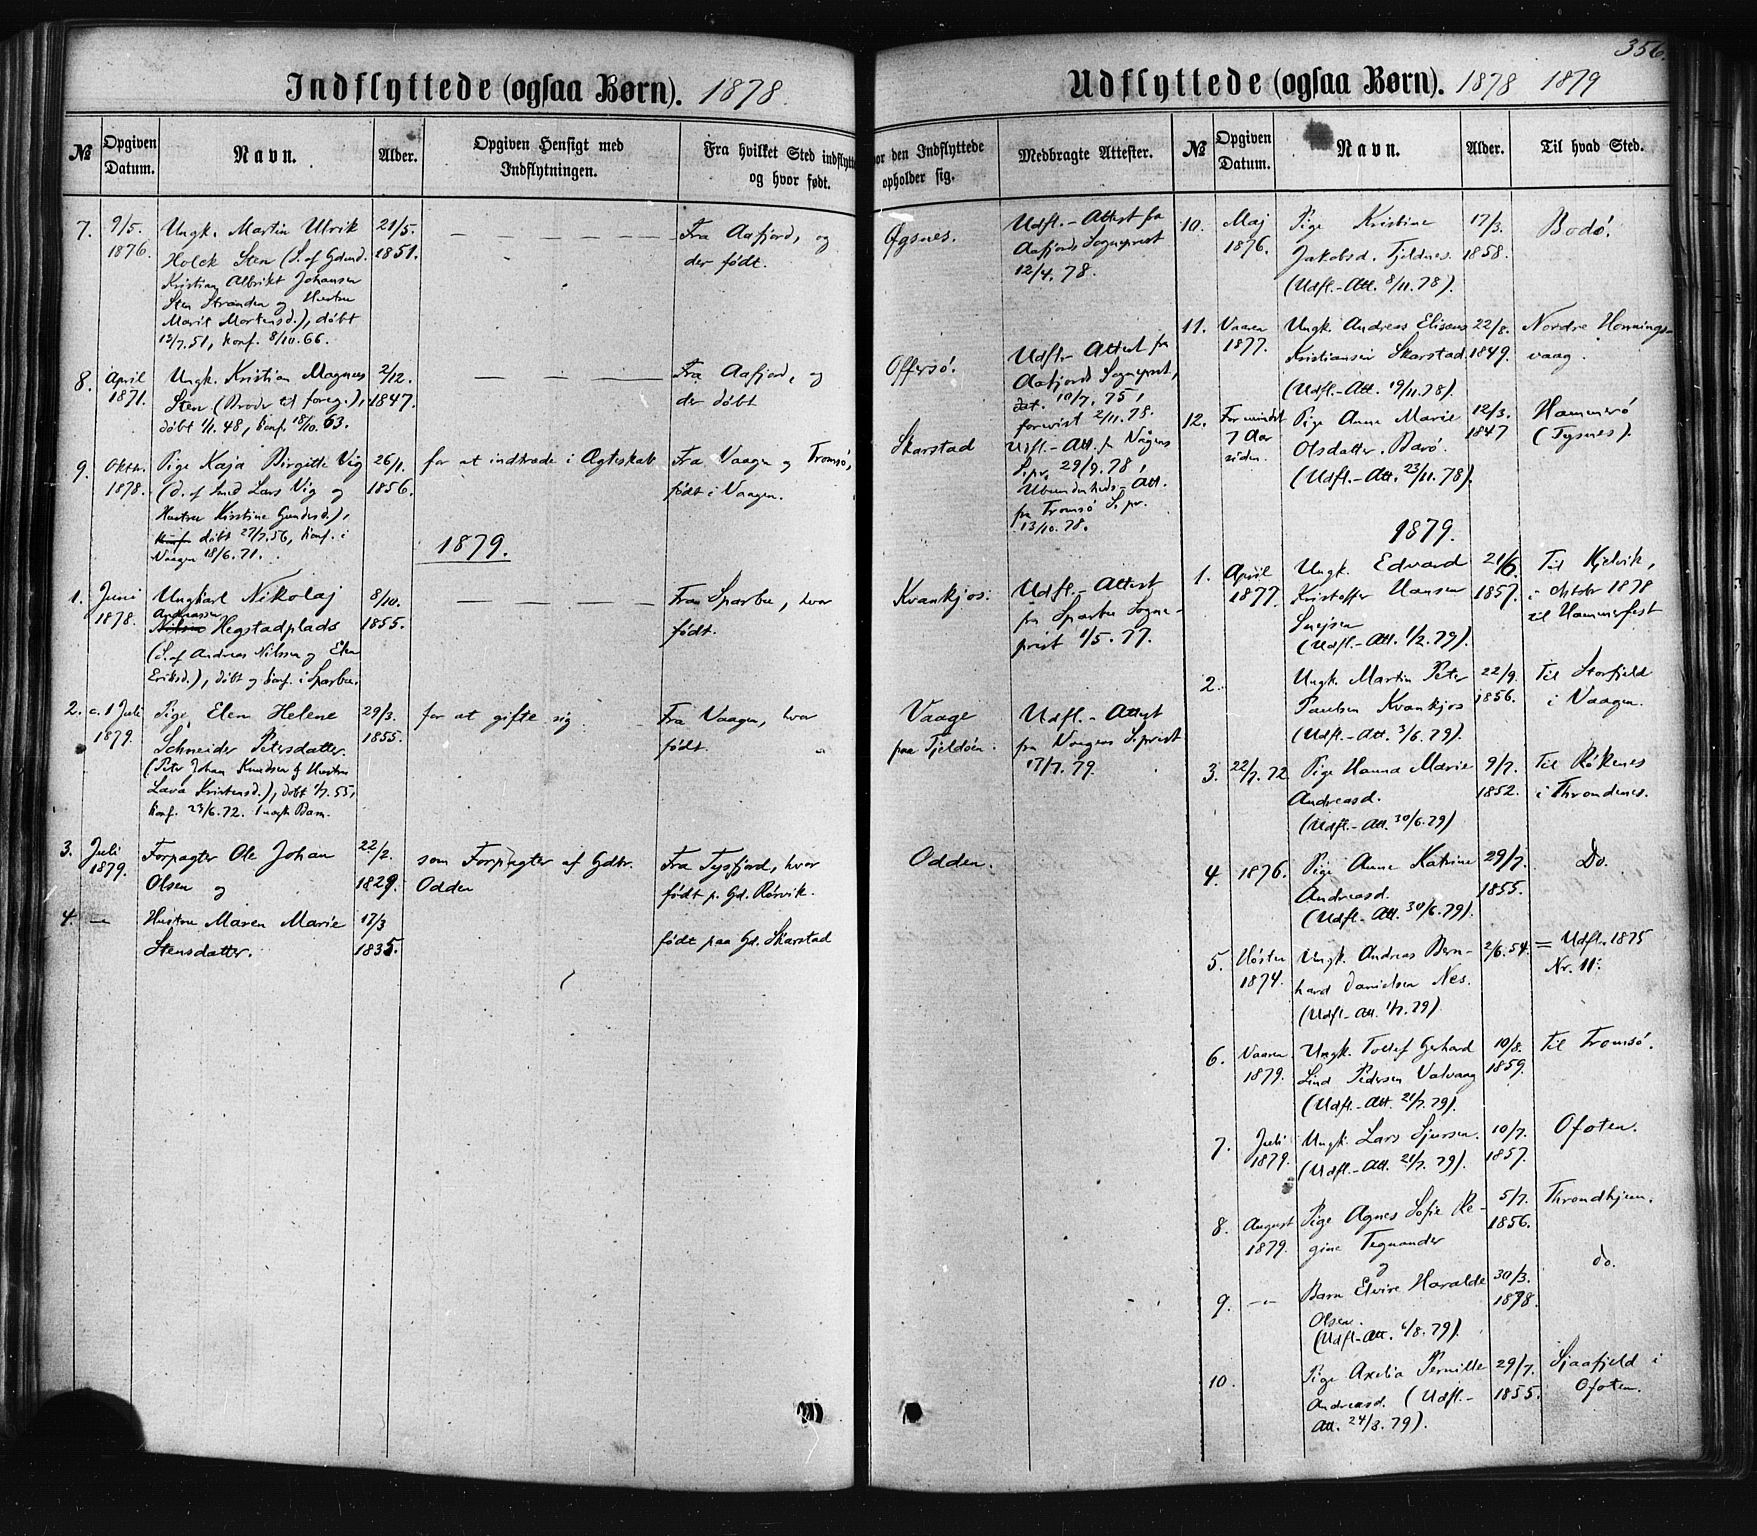 356.
Indflyttede (ogsaa Børn). 1878.
№
Opgiven Datum.
Navn.
Alder.
Opgiven Hensigt med Indflytningen.
Fra hvilket Sted indflytte
og hvor født.
or den Indflyttede
opholder sig.
Medbragte Attester.
7.
9/5.
1876.
Ungk. Martin Ulrik
Holck Sten (S. af Gdmd.
Kristian Albrikt Johansen
Sten Stranden og Hustru
Marit Mortensd.), døbt
13/7. 51, konf. 8/10. 66.
21/5.
1851.
— — — — —
Fra Aafjord, og
der født.
Øgsnes.
Udfl.-Attest fra
Aafjords Sogneprest
12/4. 78.
8.
April
1871.
Ungk. Kristian Magnus
Sten (Broder til foreg.),
døbt 1/1. 48, konf. 18/10. 63.
2/12.
1847.
— — — —
Fra Aafjord, og
der døbt
Offersø.
Udfl.-Attest fra
Aafjords Sogneprest,
dat. 10/7. 75,
forevist 2/11. 78.
9.
Oktbr.
1878.
Pige Kaja Birgitte Vig
(D. af Smed Lars Vig og
Hustru Kirstine Gundersd.),
konf. døbt 27/7. 56, konf. i
Vaagen 18/6. 71.
26/1.
1856.
for at indtræde i Ægteskab
Fra Vaagen og Tromsø,
født i Vaagen.
Skarstad
Udfl.-Att. fr. Vågens
S.pr. 29/9. 78,
Ubundetheds-Att.
fra Tromsø S.pr.
13/10. 78.
1879.
1.
Juni
1878.
Ungkarl Nikolaj
Andreassen
Nilsen Hegstadplads
(S. af Andreas Nilssen og Elen
Eriksd.), døbt og konf. i Sparbu.
8/10.
1855.
— — — —
Fra Sparbu, hvor
født.
Kvankjos.
Udfl.-Attest
fra Sparbu Sogne-
prest 1/5. 77.
2.
c. 1 Juli
1879.
Pige Elen Helene
Schneider Petersdatter.
(Peter Johan Knudsen og Hustru
Lava Kristensd.), døbt 1/7. 55,
konf. 23/6. 72. 1 uægte Barn.
29/3.
1855.
for at gifte sig
Fra Vaagen, hvor
født.
Vaage
paa Tjeldøen.
Udfl.-Attest
fra Vaagens S.prest
17/7. 79.
3.
Juli
1879.
Forpagter Ole Johan
Olsen og
22/2.
1829.
som Forpagter af Gdbr.
Odden
Fra Tysfjord, hvor
født p. Gd. Rørvik.
Odden.
4.
—
Hustru Maren Marie
Stensdatter.
17/3
1835.
født paa Gd. Skarstad
Udflyttede (ogsaa Børn). 1878 1879
№
Opgiven Datum.
Navn.
Alder.
Til hvad Sted.
10.
Maj
1876.
Pige Kristine
Jakobsd. Tjeldnes.
(Udfl.-Att. 8/11. 78).
17/3.
1858.
Bodø.
11.
Vaaren
1877.
Ungk. Andreas Eliseus
Kristiansen Skarstad.
(Udfl.-Att. 19/11. 78).
22/8.
1849.
Nordre Honnings-
vaag.
12.
For mindst
7 Aar
siden.
Pige Anne Marie
Olsdatter Barø.
(Udfl.-Att. 23/11. 78).
12/3.
1847
Hammerø
(Tysnes).
1879.
1.
April
1877.
Ungk. Edvard
Kristoffer Hansen
(Udfl.-Att. 1/2. 79).
21/6.
1857.
Til Kjelvik,
i Oktbr 1878
til Hammerfest
2.
Ungk. Martin Peter
Paulsen Kvankjos
(Udfl.-Att. 3/6. 79).
22/9.
1856.
Til Storfjeld
i Vaagen.
3.
22/7. 72
Pige Hanna Marie
Andreasd.
(Udfl.-Att. 30/6. 79)
9/7.
1852.
Til Røkenes
i Throndenes.
4.
1876.
Pige Anne Katrine
Andreasd.
(Udfl.-Att. 30/6. 79).
29/7.
1855.
Do.
5.
Høsten
1874.
Ungk. Andreas Bern-
hard Danielsen Nes.
(Udfl.-Att. 1/7. 79)
2/6. 54.
= Udfl. 1875
Nr. 11.
6.
Vaaren
1879.
Ungk. Tollef Gerhard
Lind Pedersen Valvaag
(Udfl.-Att. 21/7. 79).
10/8.
1859.
Til Tromsø.
7.
Juli
1879.
Ungk. Lars Sjursen.
(Udfl.-Att. 21/7. 79).
10/7.
1857.
Ofoten.
8.
August
1879.
Pige Agnes Sofie Re-
gine Tegnander
og
5/7.
1856.
Throndhjem.
9.
— —
Barn Elvire Haralde
Olsen.
(Udfl.-Att. 6/8. 79).
30/3.
1878.
do.
10.
Pige Axelia Pernille
Andreasd. (Udfl.-
Att. 24/8. 79).
29/7.
1855.
Sjaafjeld i
Ofoten.